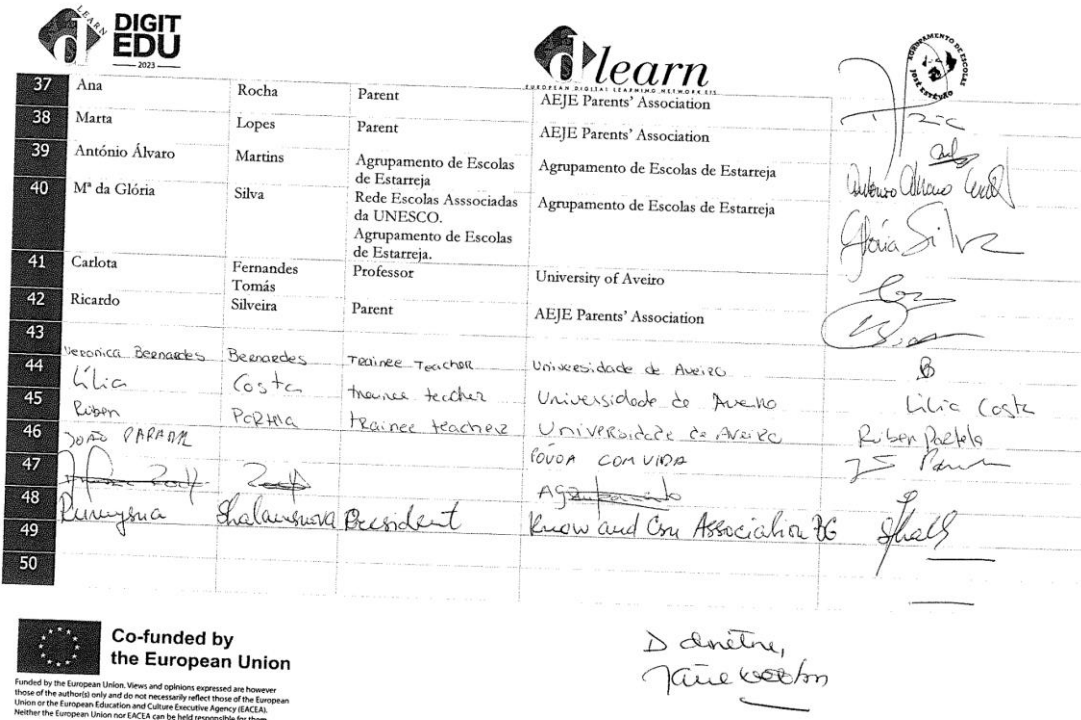 LEARN
d
DIGIT
EDU
2023
dlearn
EUROPEAN DIGITAL LEARNING NETWORK ETS
AGRUPAMENTO DE ESCOLAS
JOSÉ ESTÊVÃO
37 Ana Rocha Parent AEJE Parents' Association
38 Marta Lopes Parent AEJE Parents' Association
39 António Álvaro Martins Agrupamento de Escolas de Estarreja Agrupamento de Escolas de Estarreja
40 Mª da Glória Silva Rede Escolas Asssociadas da UNESCO. Agrupamento de Escolas de Estarreja. Agrupamento de Escolas de Estarreja Glória Silva
41 Carlota Fernandes Tomás Professor University of Aveiro
42 Ricardo Silveira Parent AEJE Parents' Association
43
Veronica Bernardes Bernardes Trainee Teacher Universidade de Aveiro
44 Lília Costa trainee teacher Universidade de Aveiro Lília Costa
45 Rúben trainee teacher Universidade de Aveiro Rúben
46 João PÓVOA COM VIDA
47
48 President Know and Can Association BG
49
50
Co-funded by
the European Union
Funded by the European Union. Views and opinions expressed are however
those of the author(s) only and do not necessarily reflect those of the European
Union or the European Education and Culture Executive Agency (EACEA).
Neither the European Union nor EACEA can be held responsible for them.